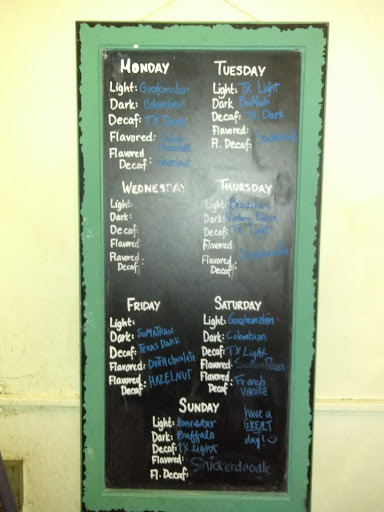 MONDAY
Light: Guatemalan
Dark: Colombian
Decaf: TX Dark
Flavored: Dutch Chocolate
Flavored Decaf: Hazelnut
TUESDAY
Light: TX Light
Dark Buffalo
Decaf: TX Dark
Flavored:
Fl. Decaf:
WEDNESDAY
Light:
Dark:
Decaf:
Flavored
Flavored Decaf:
THURSDAY
Light: Brazilian
Dark:
Decaf: TX Light
Flavored
Flavored Decaf:
FRIDAY
Light:
Dark: SUMATRAN
Decaf: TEXAS DARK
Flavored: DUTCH chocolate
Flavored Decaf: HAZELNUT
SATURDAY
Light: Guatemalan
Dark: Colombian
Decaf: TX Light
Flavored:
Flavored Decaf: French Vanilla
SUNDAY
Light:
Dark: Buffalo
Decaf: TX Light
Flavored:
Fl. Decaf: Snickerdoodle
have a
GREAT
day!